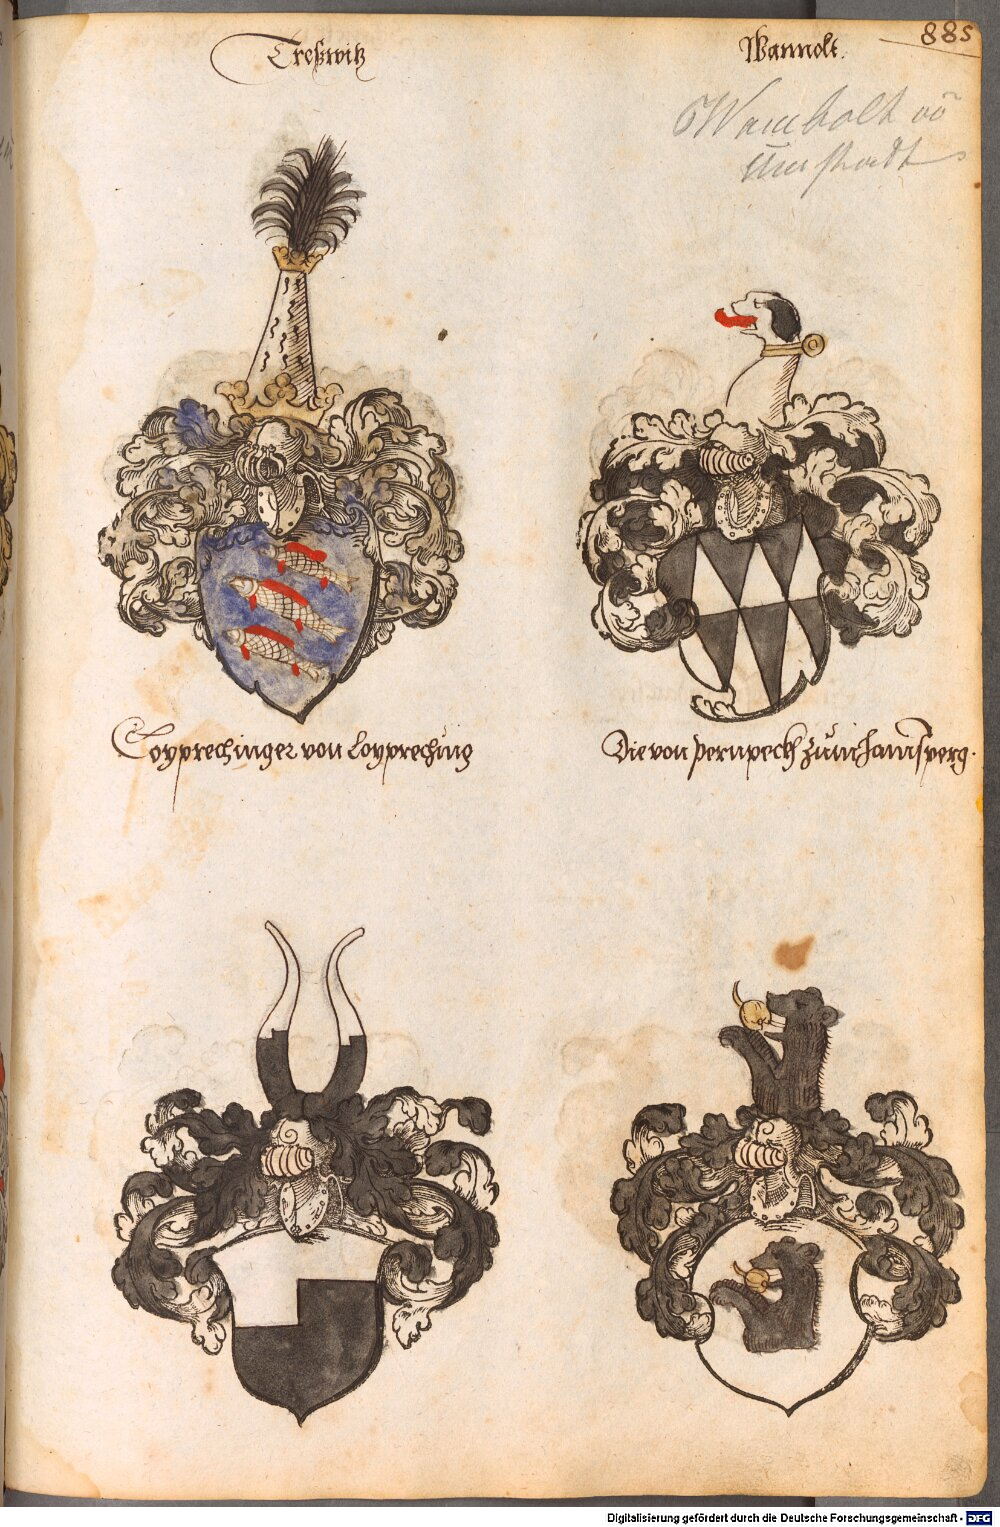 Treßwitz
Wannolt.
885
Wambolt vo
Umstadt
Loyprechinger von Loypreching
Die von pernpeck zum
Digitalisierung gefördert durch die Deutsche Forschungsgemeinschaft - DFG